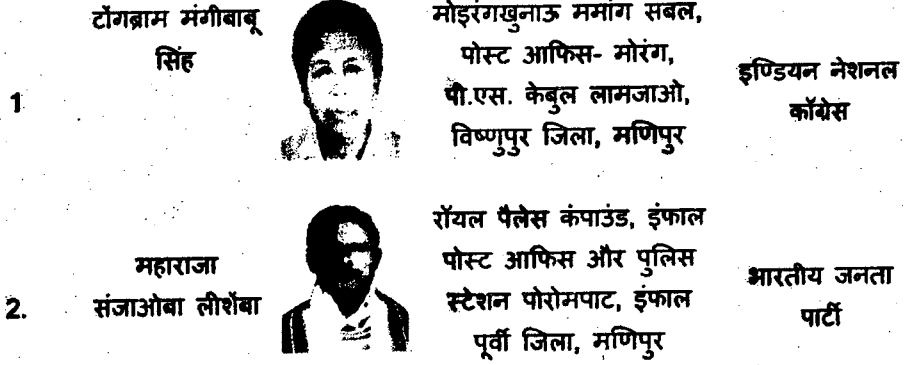 टोंगब्राम मंगीबाबू
सिंह
1
मोइरंगखुनाऊ ममांग सबल,
पोस्ट आफिस- मोरंग,
पी.एस. केबुल लामजाओ,
विष्णुपुर जिला, मणिपुर
इण्डियन नेशनल
कॉंग्रेस
महाराजा
2. संजाओबा लीशेंबा
रॉयल पैलेस कंपाउंड, इंफाल
पोस्ट आफिस और पुलिस
स्टेशन पोरोमपाट, इंफाल
पूर्वी जिला, मणिपुर
भारतीय जनता
पार्टी